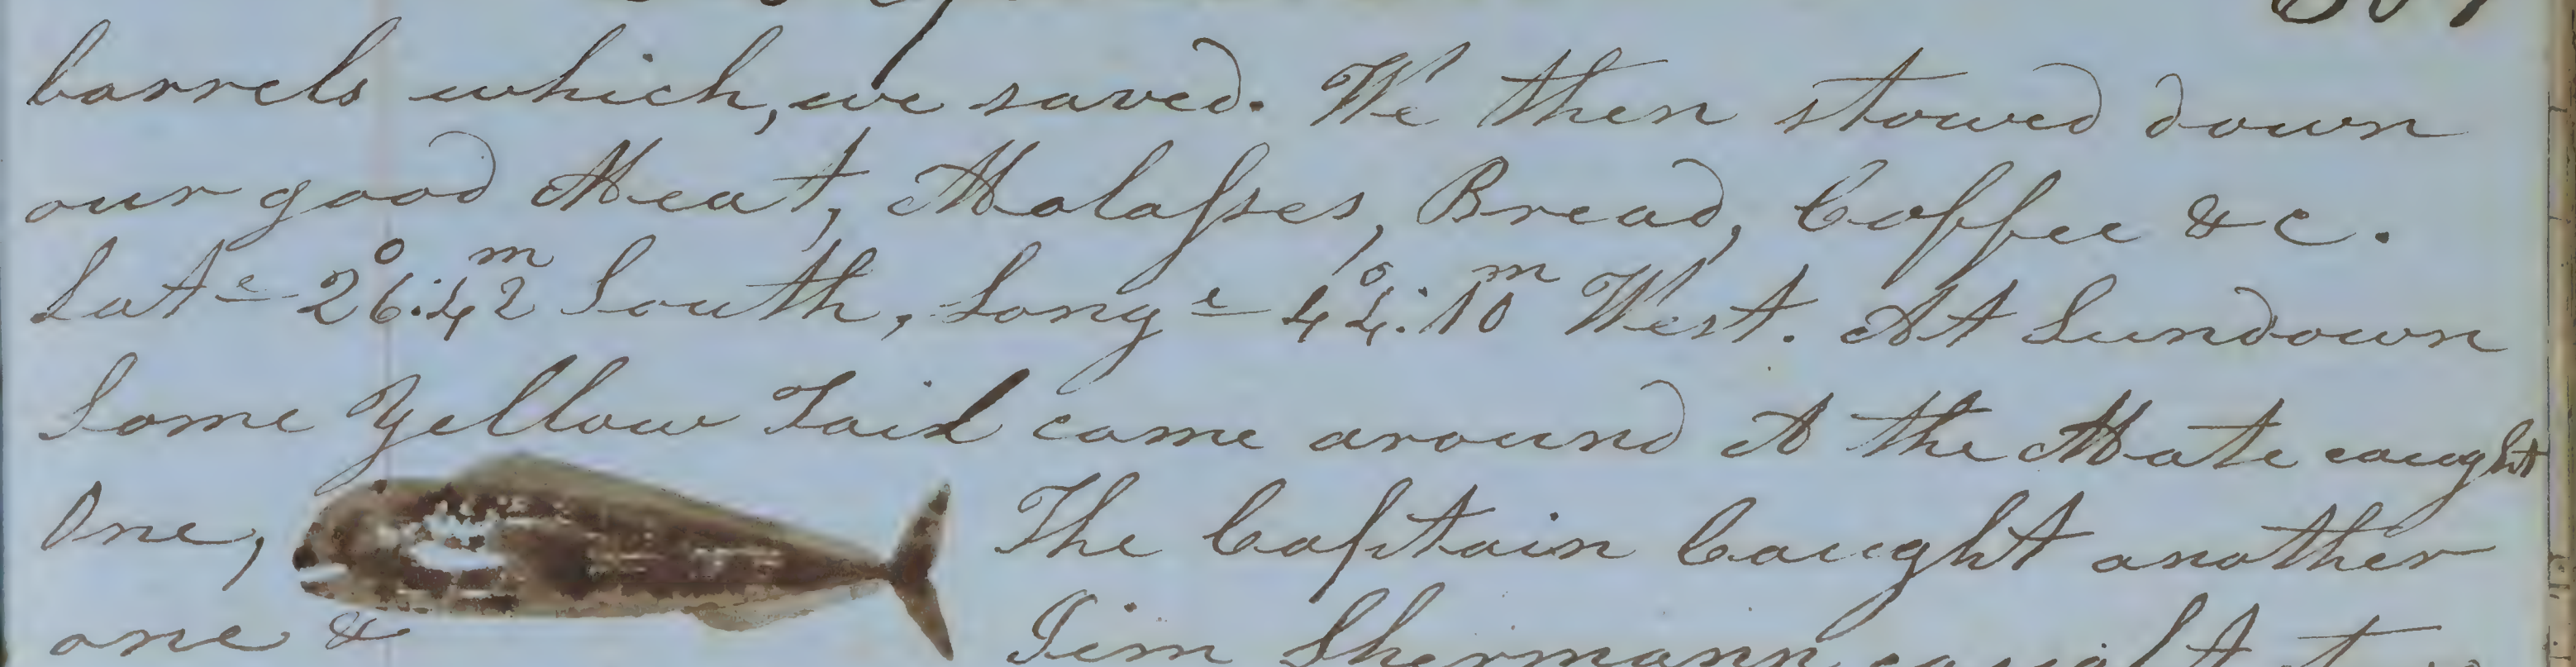 barrels which, we saved. We then stowed down
our good Meat, Molaſses, Bread, Coffee &c.
Latᵉ 26°:42ᵐ South, Longᵉ 44°:10ᵐ West. At Sundown
Some Yellow Tail came around & the Mate caught
One, The Captain Caught another
one & Jim Shermann caught